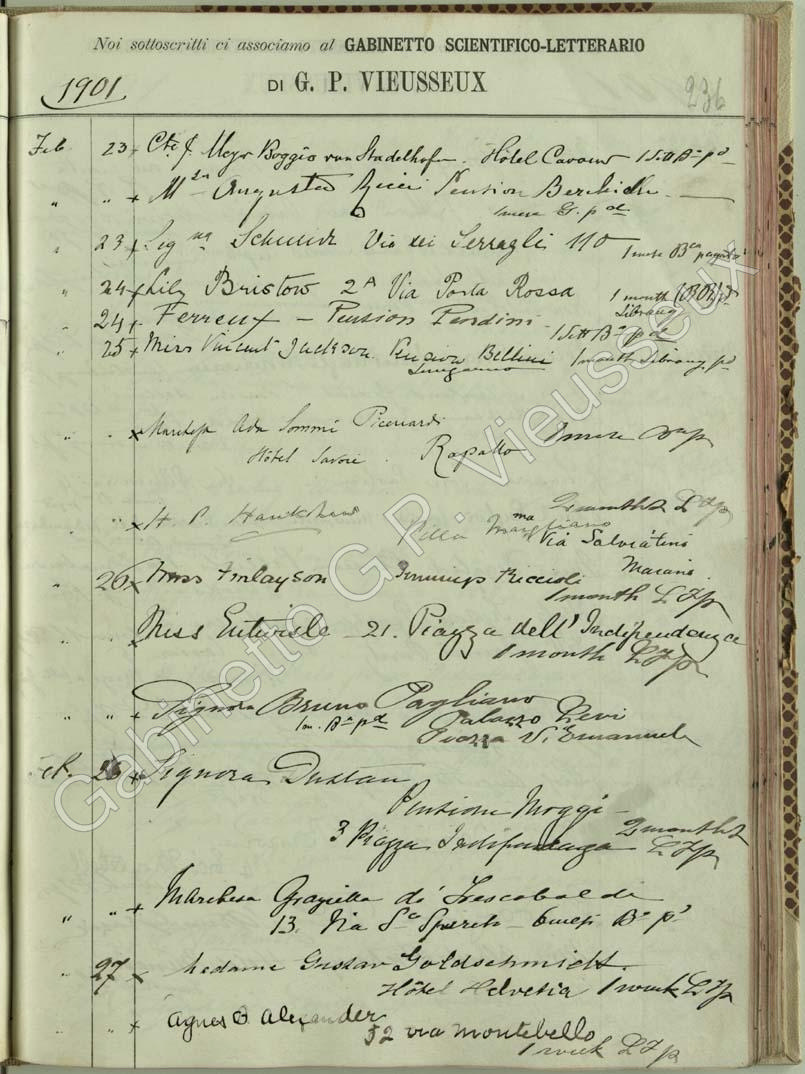 Noi sottoscritti ci associamo al GABINETTO SCIENTIFICO-LETTERARIO
DI G. P. VIEUSSEUX
1901
236
Feb 23 x Cte J. Meyr Boggio van Stadelhofen. Hôtel Cavour 1 Sett Ba pd
" " x Augusta Ricci Pension
1 mese G. pd
" 23 x Signa Schmidt Via dei Serragli 110 1 mese Bca pagato
" 24 x Lily Bristow 2A Via Porta Rossa 1 month
Library
24 x Ferreux - Pension Pendini 1 Sett Ba pd
" 25 x Miss Vincent Jackson Pension Bellini 1 month Library pd
Lungarno
" " x Ada Sommi Picenardi 1 mese
Hôtel Savoie. Rapallo
2 months L Fp
" " x H. P. Hawkshaw Villa
Via Salviatino
Maiano
" 26 x Miss Finlayson Jennings Riccioli
1 month L Fp
" " x Miss Entwisle - 21. Piazza dell' Indipendenza
1 month L Fp
" " x Signora Bruno Pagliano
1 m. Ba pd Palazzo Levi
Piazza V. Emanuele
Feb. 26 x Signora Dustau
Pension Moggi -
3 Piazza Indipendenza 2 months
L Fp
" " x Marchesa Graziella de' Frescobaldi
13. Via Sto Spirito - 6 mesi Ba pd
" 27 x Madame Gustav Goldschmidt.
Hôtel Helvetia 1 week L Fp
" " x Agnes B. Alexander
52 via Montebello
1 week L Fp
Gabinetto G.P. Vieusseux